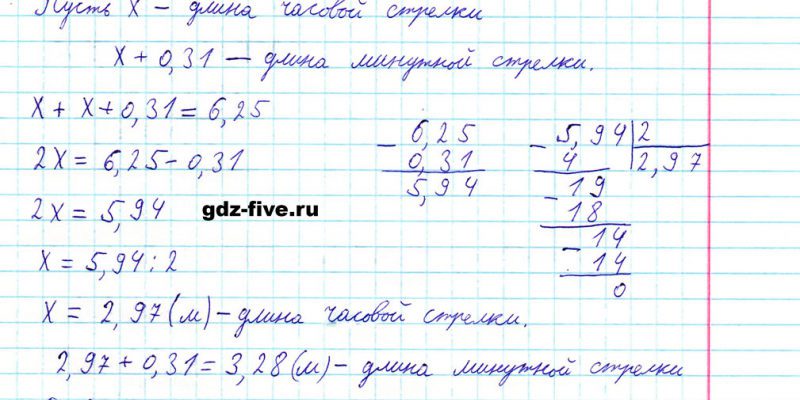 Пусть х - длина часовой стрелки
х + 0,31 — длина минутной стрелки.
х + х + 0,31 = 6,25
2х = 6,25 - 0,31
2х = 5,94
х = 5,94 : 2
х = 2,97 (м) - длина часовой стрелки.
2,97 + 0,31 = 3,28 (м) - длина минутной стрелки
- 6,25
0,31
5,94
- 5,94 2
4 2,97
- 19
18
- 14
14
0
gdz-five.ru